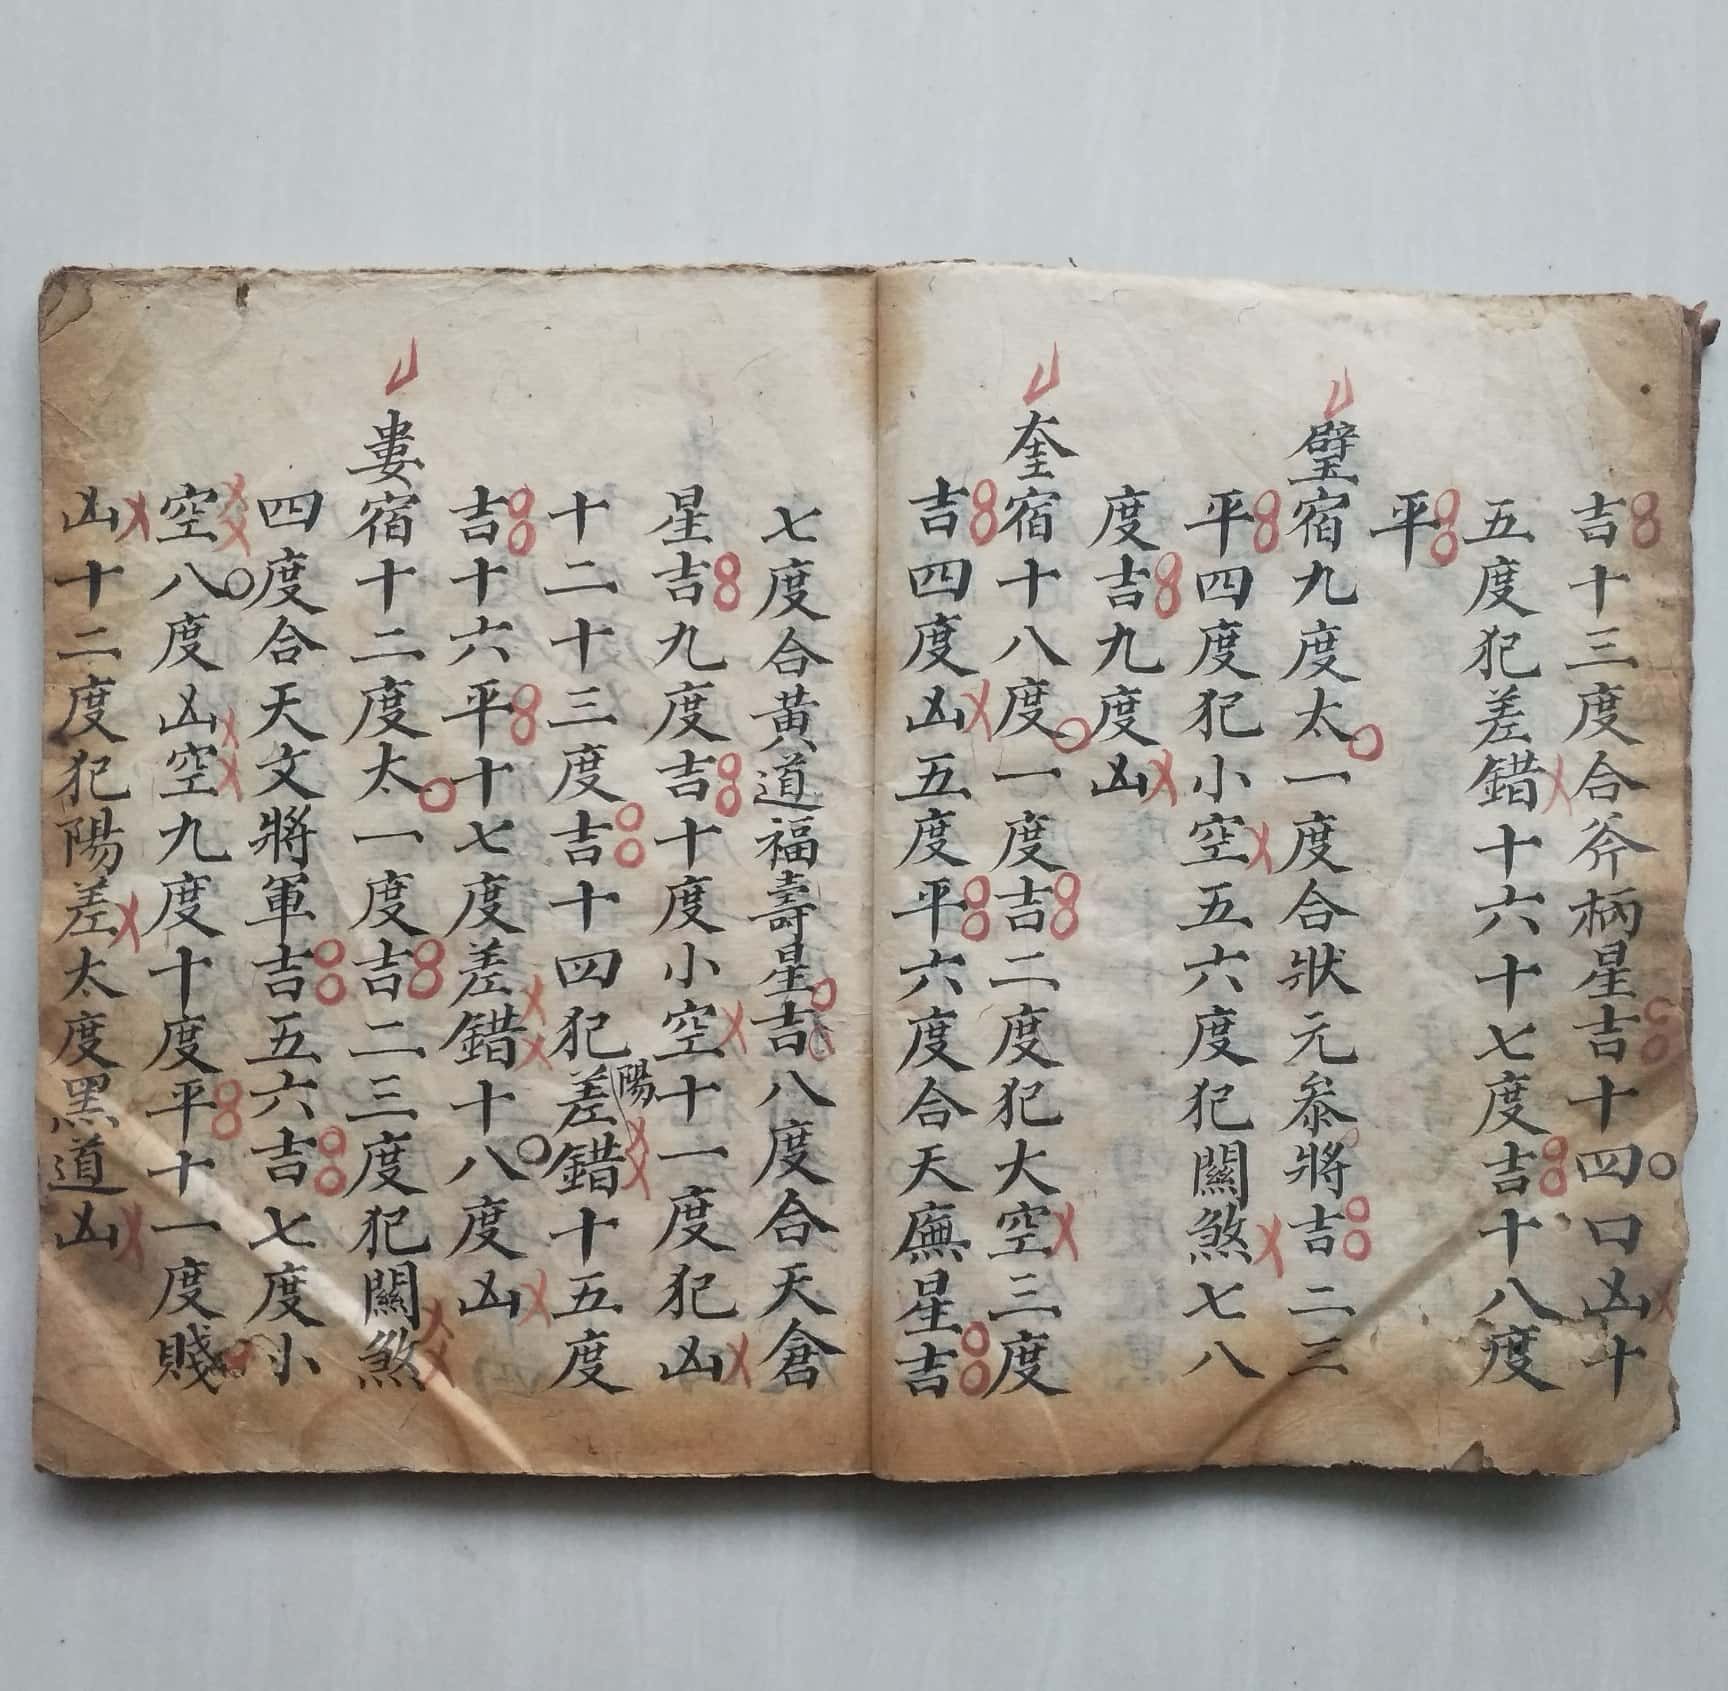 吉十三度合斧柄星吉十四口凶十
五度犯差錯十六十七度吉十八度
平
壁宿九度太一度合狀元叅將吉二三
平四度犯小空五六度犯關煞七八
度吉九度凶
奎宿十八度一度吉二度犯大空三度
吉四度凶五度平六度合天廡星吉
七度合黃道福壽星吉八度合天倉
星吉九度吉十度小空十一度犯凶
十二十三度吉十四犯陽差錯十五度
吉十六平十七度差錯十八度凶
婁宿十二度太一度吉二三度犯關煞
四度合天文將軍吉五六吉七度小
空八度凶空九度十度平十一度賤
凶十二度犯陽差太度黑道凶